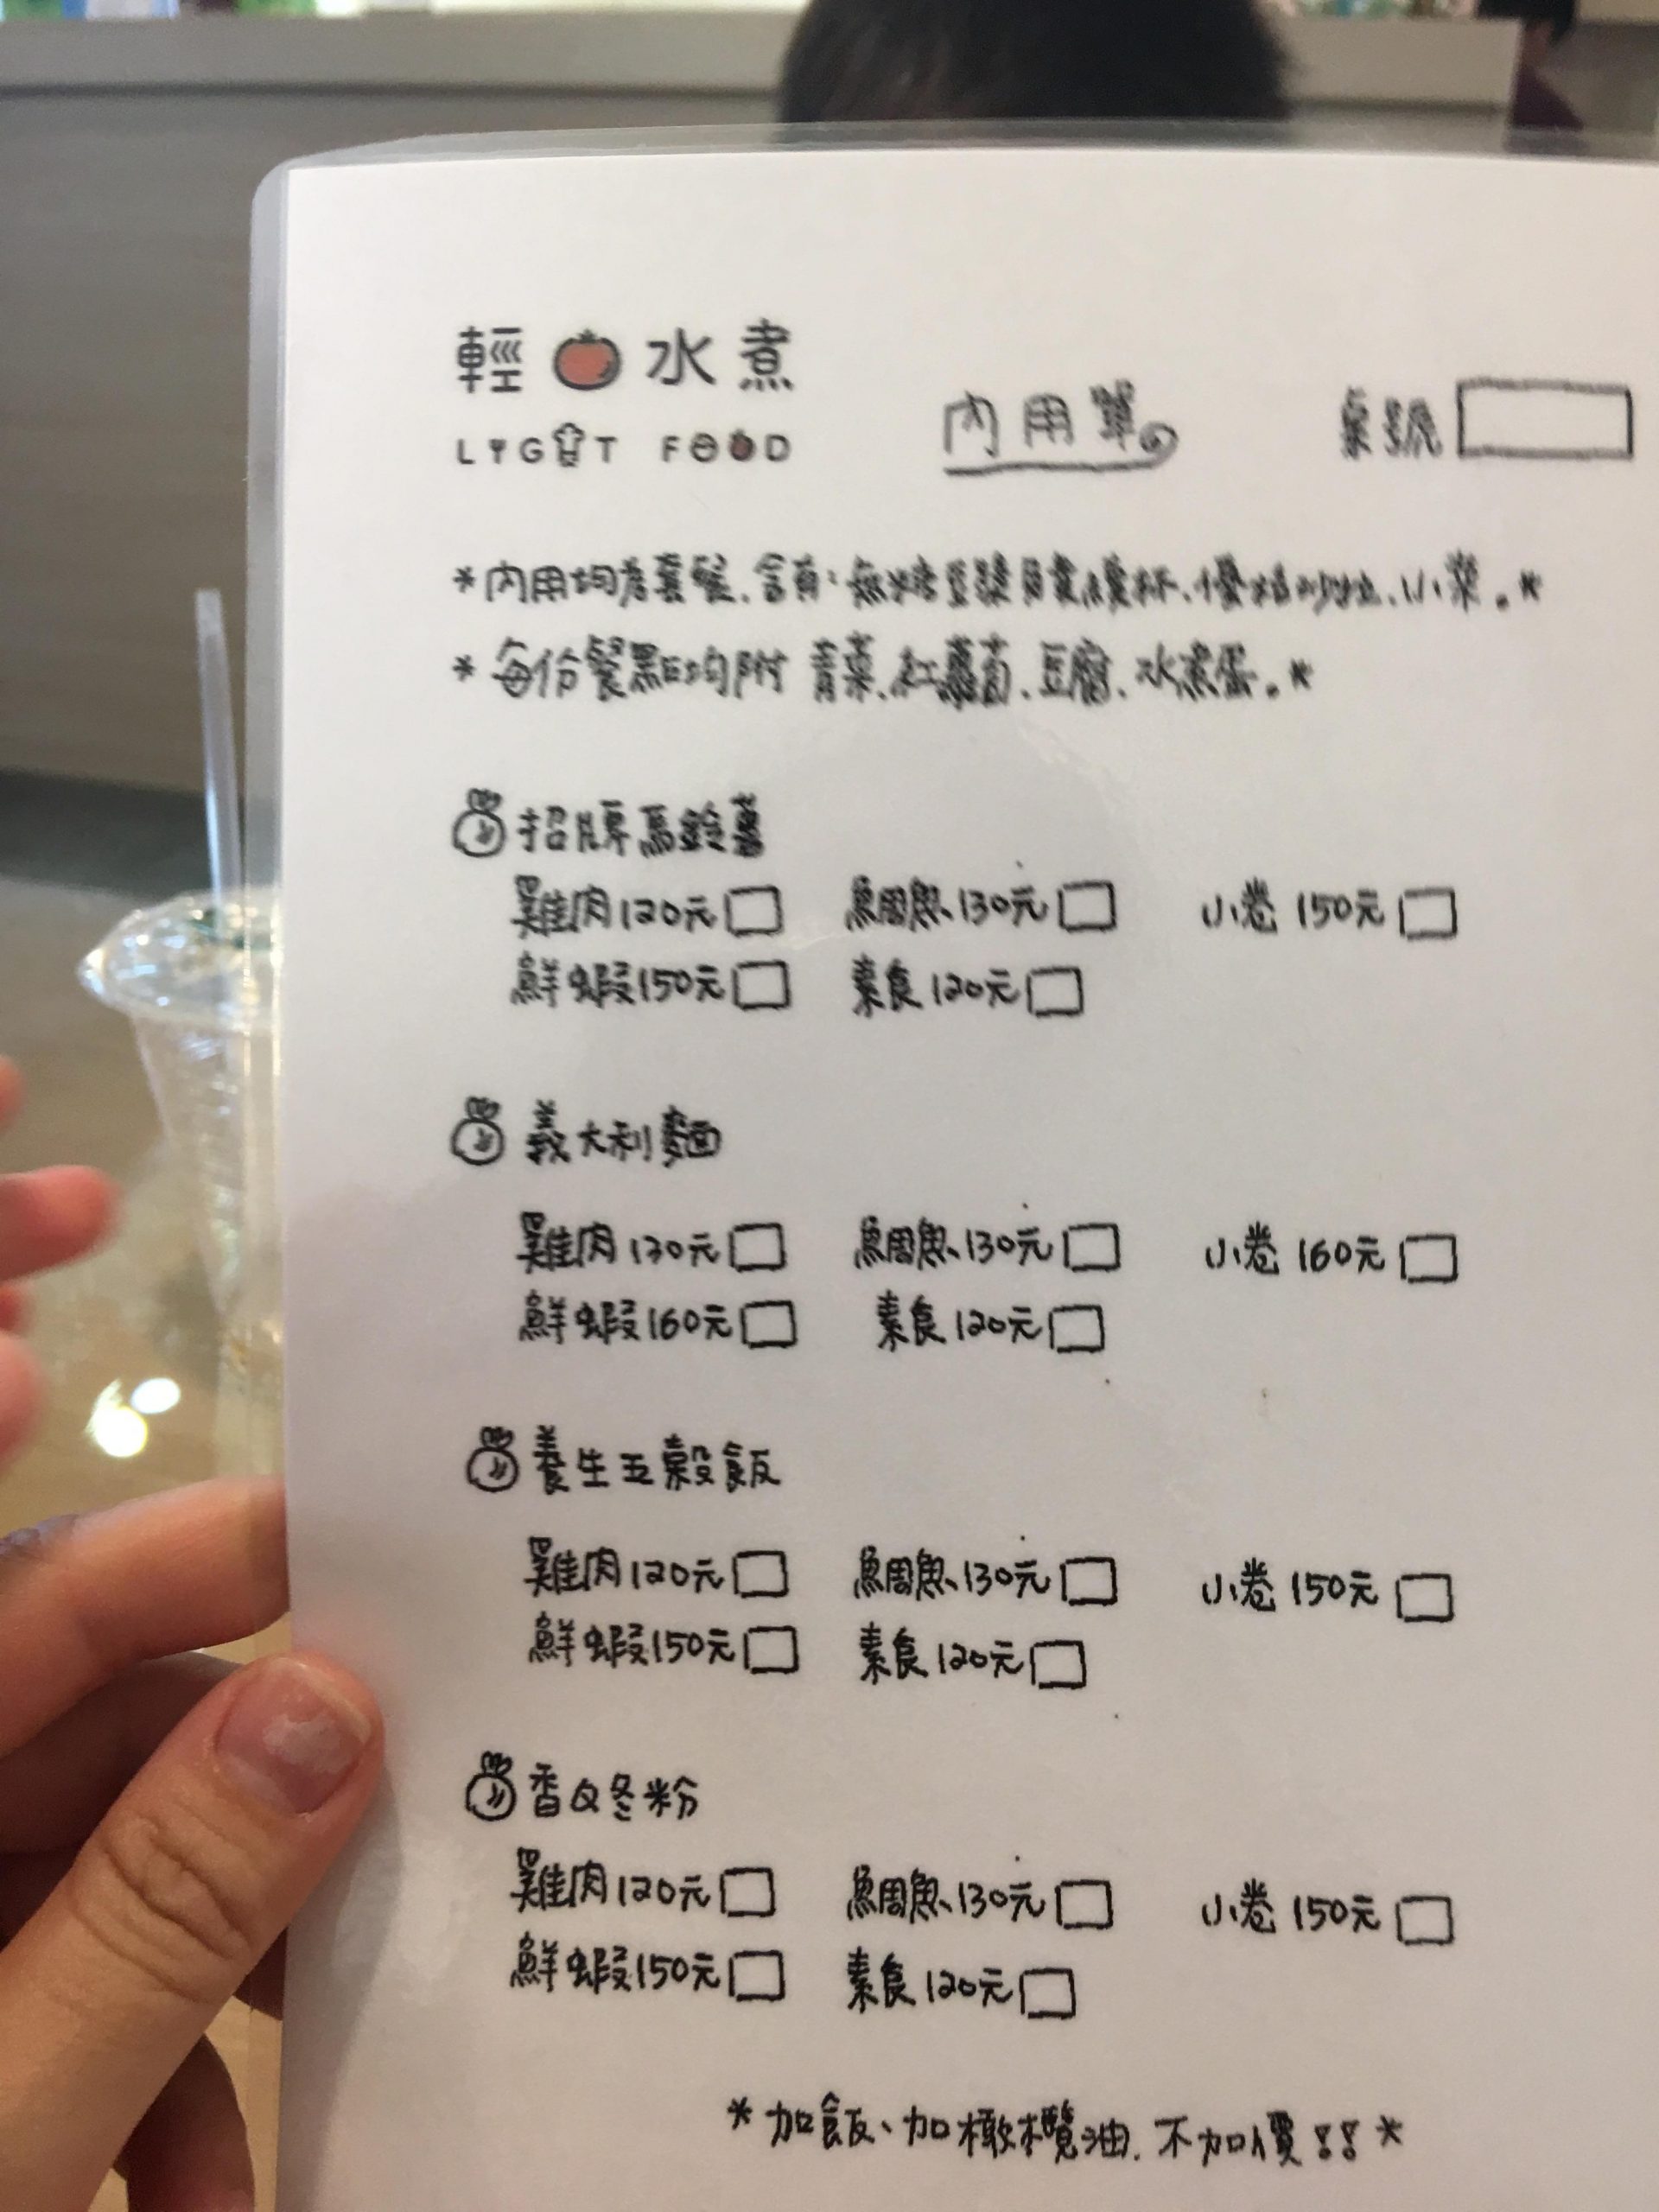 輕水煮
LIGHT FOOD
內用單
桌號
*內用均為套餐.含有:無糖豆漿
*每份餐點均附 青菜.紅蘿蔔.豆腐.水煮蛋。*
招牌馬鈴薯
雞肉120元 鯛魚130元 小卷 150元
鮮蝦150元 素食120元
義大利麵
雞肉130元 鯛魚130元 小卷 160元
鮮蝦160元 素食120元
養生五穀飯
雞肉120元 鯛魚130元 小卷 150元
鮮蝦150元 素食120元
香Q冬粉
雞肉120元 鯛魚130元 小卷 150元
鮮蝦150元 素食120元
*加飯、加橄欖油.不加價!!*